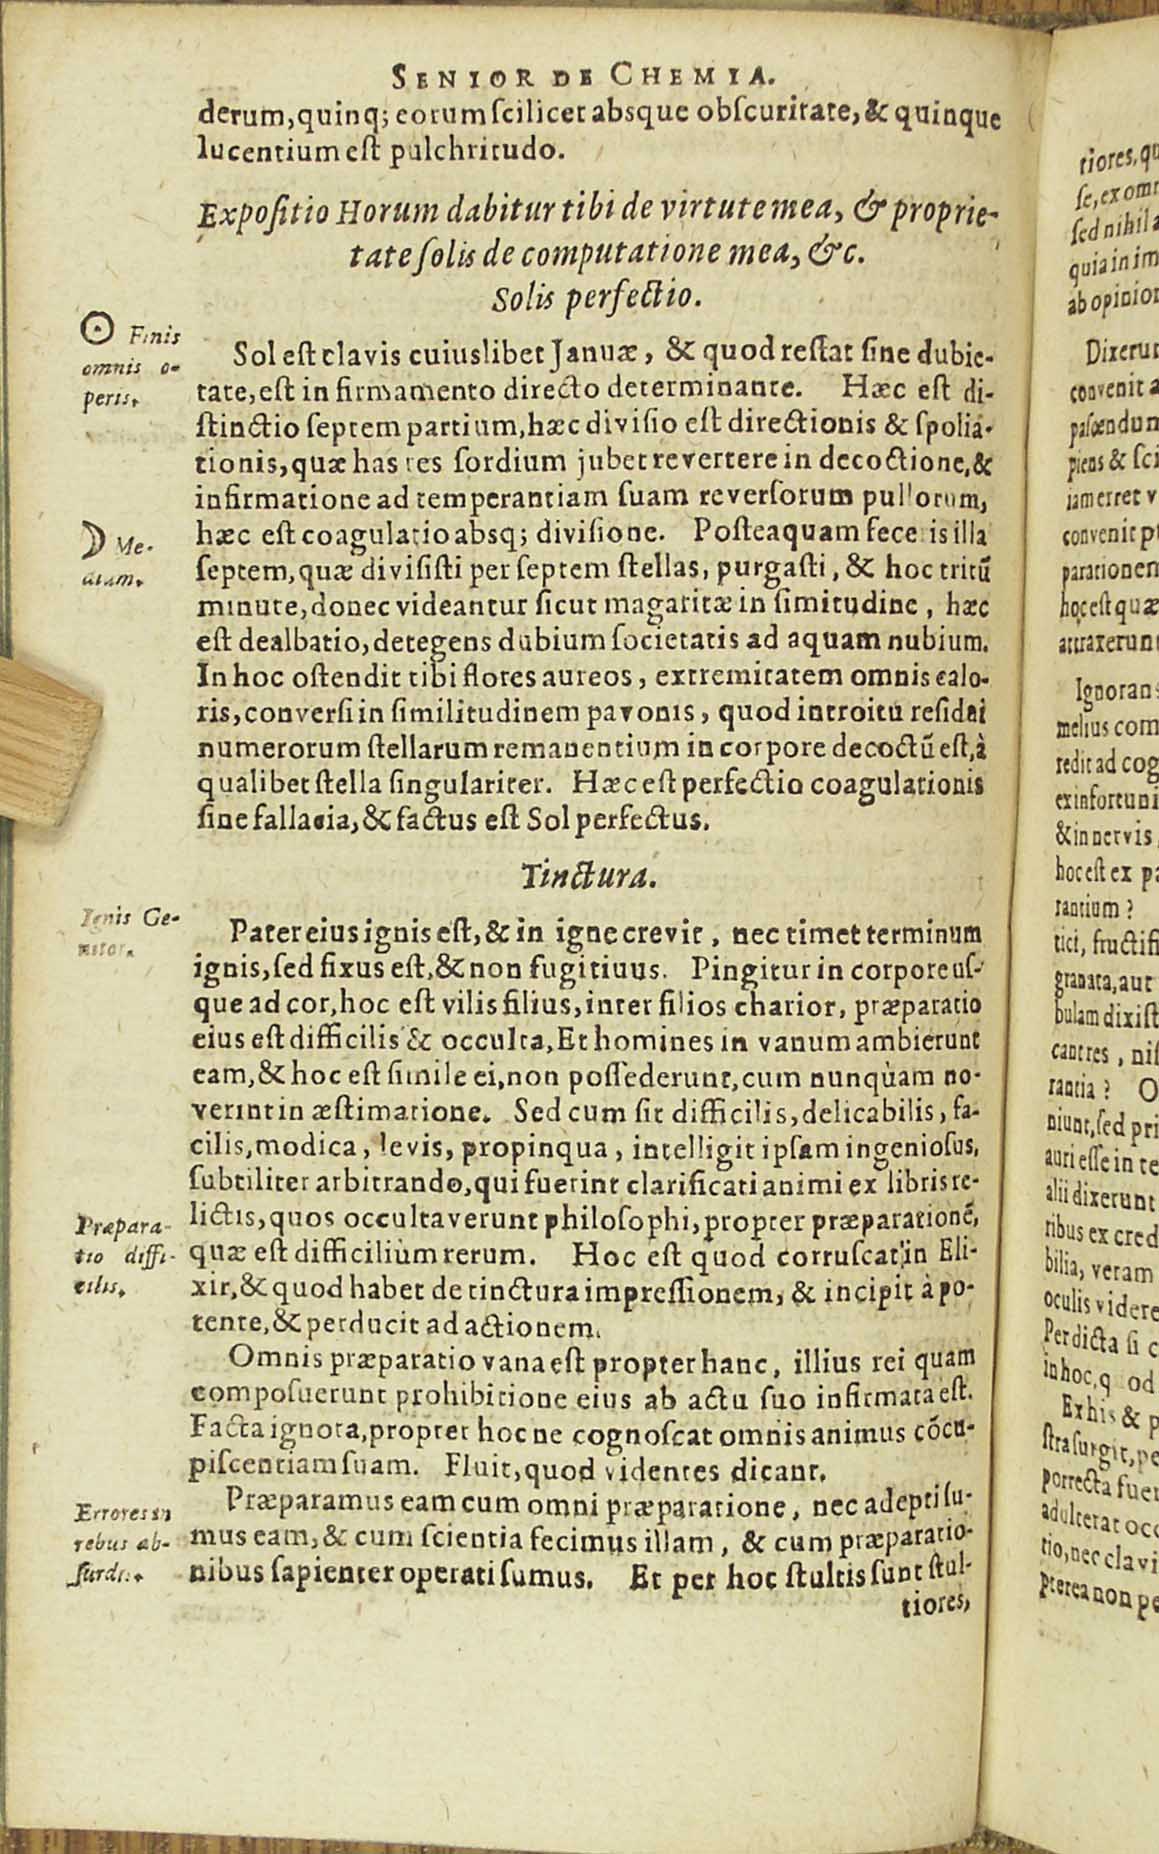 SENIOR DE CHEMIA.
derum, quinq; eorum scilicet absque obscuritate, & quinque
lucentium est pulchritudo.
Expositio Horum dabitur tibi de virtute mea, & proprie-
tate solis de computatione mea, &c.
Solis perfectio.
☉ Finis
omnis o-
peris.
Sol est clavis cuiuslibet Januæ, & quod restat sine dubie-
tate, est in firmamento directo determinante. Hæc est di-
stinctio septem partium, hæc divisio est directionis & spolia-
tionis, quæ has res sordium jubet revertere in decoctione, &
infirmatione ad temperantiam suam reversorum pullorum,
hæc est coagulatio absq; divisione. Posteaquam feceris illa
☽ Me-
diam.
septem, quæ divisisti per septem stellas, purgasti, & hoc tritū
minute, donec videantur sicut magaritæ in simitudine, hæc
est dealbatio, detegens dubium societatis ad aquam nubium.
In hoc ostendit tibi flores aureos, extremitatem omnis calo-
ris, conversi in similitudinem pavonis, quod introitu residui
numerorum stellarum remanentium in corpore decoctū est, à
qualibet stella singulariter. Hæc est perfectio coagulationis
sine fallacia, & factus est Sol perfectus.
Tinctura.
Ignis Ge-
nitor.
Pater eius ignis est, & in igne crevit, nec timet terminum
ignis, sed fixus est, & non fugitiuus. Pingitur in corpore us-
que ad cor, hoc est vilis filius, inter filios charior, præparatio
eius est difficilis & occulta, Et homines in vanum ambierunt
eam, & hoc est simile ei, non possederunt, cum nunquàm no-
verint in æstimatione. Sed cum sit difficilis, delicabilis, fa-
cilis, modica, levis, propinqua, intelligit ipsam ingeniosus,
subtiliter arbitrando, qui fuerint clarificati animi ex libris re-
lictis, quos occultaverunt philosophi, propter præparationē,
Præpara-
tio diffi-
cilis.
quæ est difficiliùm rerum. Hoc est quod corruscat in Eli-
xir, & quod habet de tinctura impressionem, & incipit à po-
tente, & perducit ad actionem.
Omnis præparatio vana est propter hanc, illius rei quam
composuerunt prohibitione eius ab actu suo infirmata est.
Facta ignota, propter hoc ne cognoscat omnis animus cōcu-
piscentiam suam. Fluit, quod videntes dicant.
Præparamus eam cum omni præparatione, nec adepti su-
Errores in
rebus ab-
surdis.
mus eam, & cum scientia fecimus illam, & cum præparatio-
nibus sapienter operati sumus. Et per hoc stultis sunt stul-
tiores,
tiores, qu
se, ex omn
sed nihil a
quia in im
ab opinion
Dixerun
convenit a
pascendum
piens & sci
iam erret v
convenit p
parationem
hoc est quæ
attraxerunt
Ignorans
melius com
redit ad cog
ex infortuni
& in nervis,
hoc est ex pa
rantium?
tici, fructifi
granata, aut
bulam dixist
cant res, nis
rantia? O
niunt, sed pri
auri esse in te
alii dixerunt
ribus ex cred
bilia, veram
oculis videre
Perdicta si c
in hoc, quod
Ex his & p
stra surgit, pe
porrecta fuer
adulterat occ
tio, nec clavi
pterea non pe